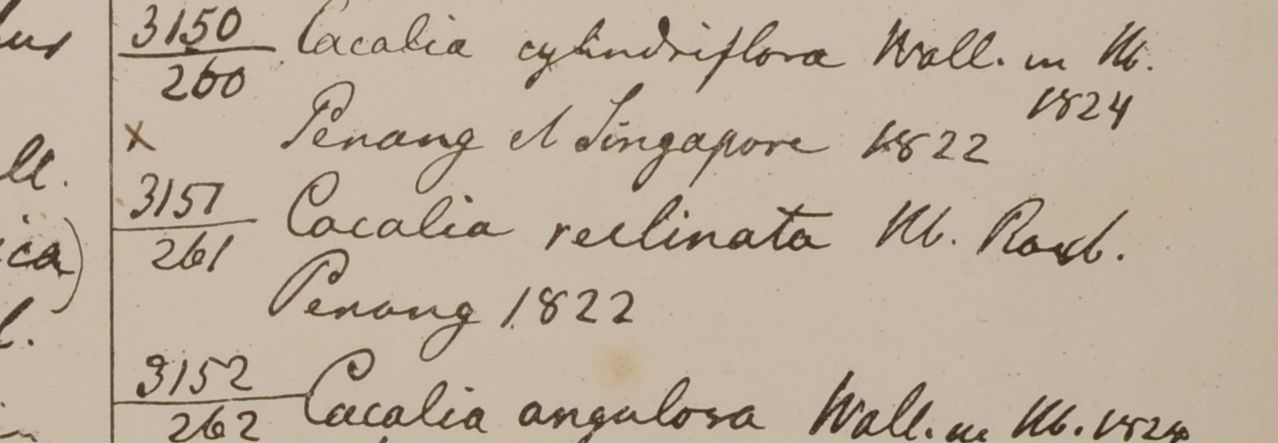 3150 Cacalia cylindriflora Wall. in Hb.
260 1824
x Penang et Singapore 1822
ll.
3151 Cacalia reclinata Hb. Roxb.
261
ica)
Penang 1822
3152 Cacalia angulosa Wall. in Hb. 1824
262